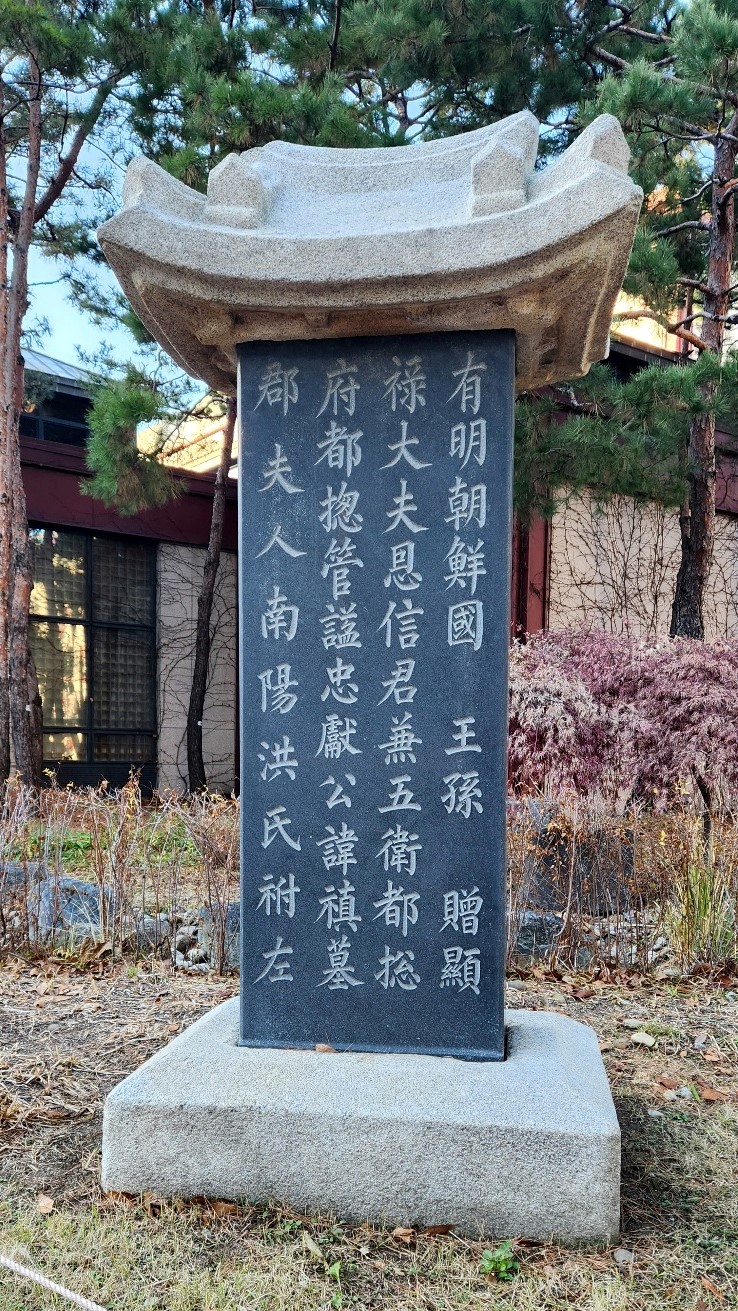 有明朝鮮國 王孫 贈顯
祿大夫恩信君兼五衛都総
府都摠管諡忠獻公諱禛墓
郡夫人南陽洪氏祔左